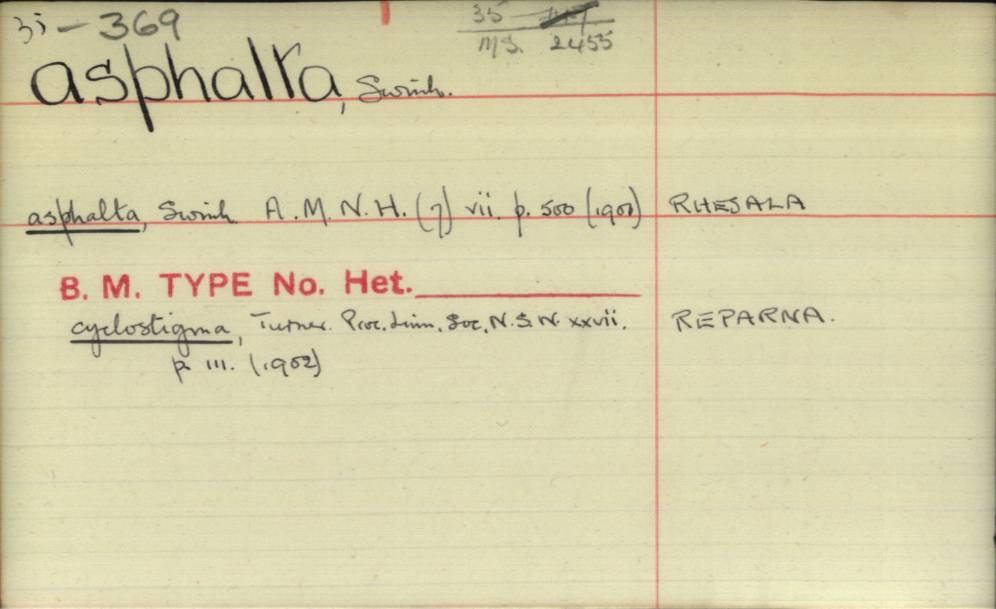 35 – 369
35
M.S. 2455
asphalta, Swinh.
asphalta, Swinh. A.M.N.H. (7) vii. p. 500 (1901) RHESALA
B. M. TYPE No. Het.
cyclostigma, Turner. Proc. Linn. Soc. N.S.W. xxvii. REPARNA.
p. 111. (1902)